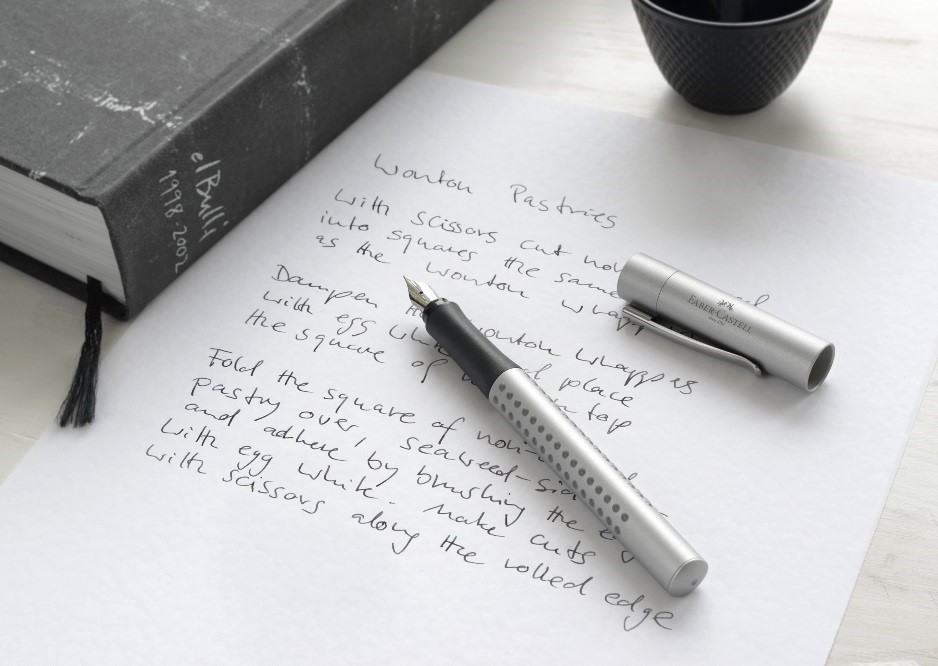 elBulli
1998-2002
Wonton Pastries
With scissors cut
into squares the same
as the wonton
Dampen the wonton whappers
with egg place
the square of top
Fold the square of
pastry over, seaweed-
and adhere by brushing the
with egg white. Make cuts
with scissors along the rolled edge
FABER-CASTELL